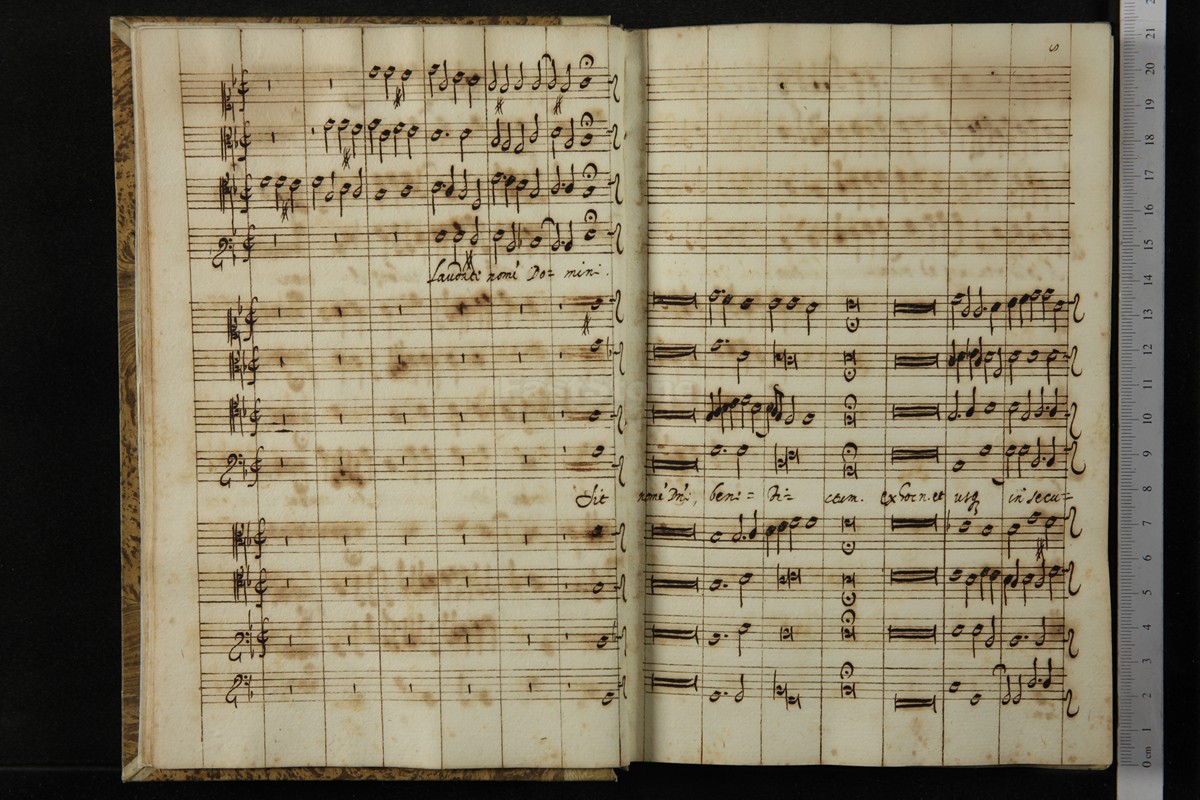 8
laudate nomē Do= mini.
Sit nomē Dn̄i, bene= di= ctum. ex hoc n. et usq̨ in secu=
FastStone
21
20
19
18
17
16
15
14
13
12
11
10
9
8
7
6
5
4
3
2
1
0 cm